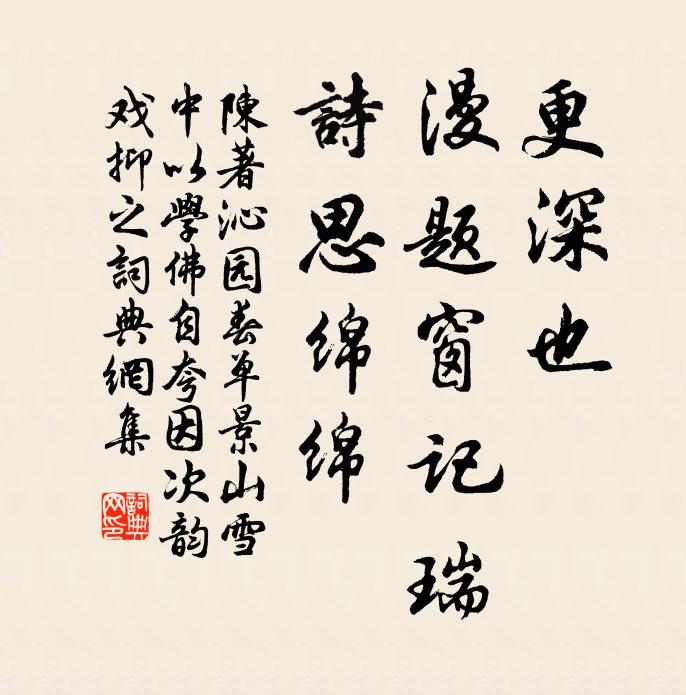 更深也
漫题窗记瑞
詩思绵绵
陳著沁园春单景山雪
中以學佛自夸因次韵
戏抑之詞典網集
詞典
网印